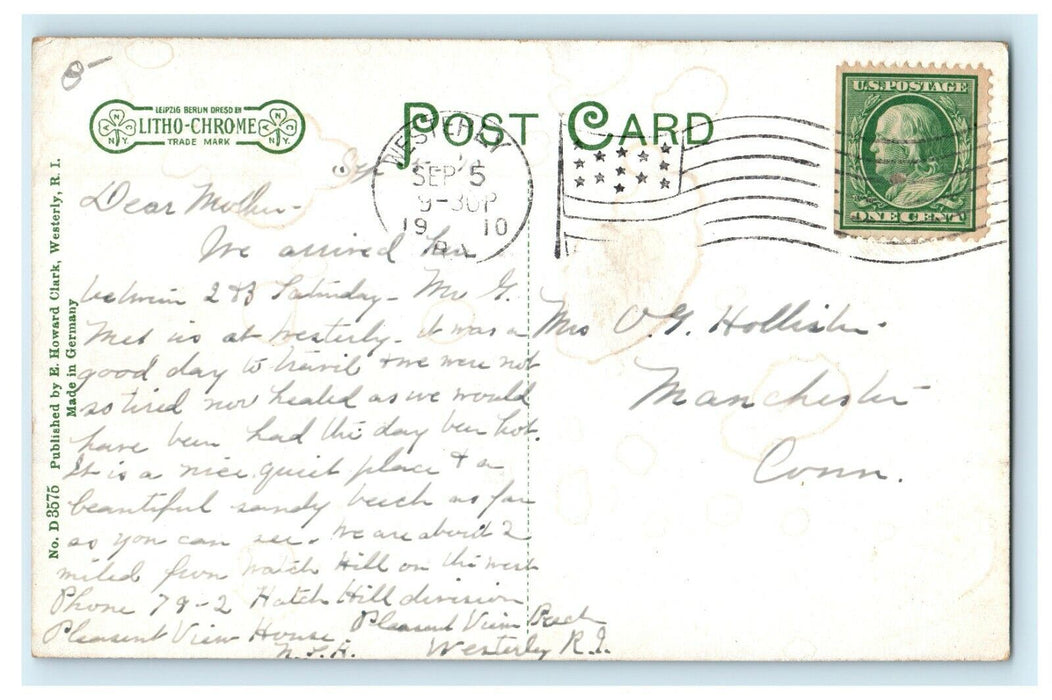 LEIPZIG BERLIN DRESDEN
LITHO-CHROME
TRADE MARK
N.Y.
N.Y.
POST CARD
WESTERLY
SEP 5
9-30P
19 10
R.I.
U.S. POSTAGE
ONE CENT
No. D 3575 Published by E. Howard Clark, Westerly, R. I.
Made in Germany
Sep
Dear Mother-
We arrived here
between 2 & 3 Saturday- Mr G.
Met us at Westerly. it was a
good day to travel & we were not
so tired nor heated as we would
have been had the day been hot.
It is a nice quiet place & a
beautiful sandy beach as far
as you can see. We are about 2
miles from Watch Hill on the west
Phone 79-2 Watch Hill division
Pleasent View House Pleasent View Beach
Westerly R.I.
Mrs O.G. Hollister.
Manchester
Conn.